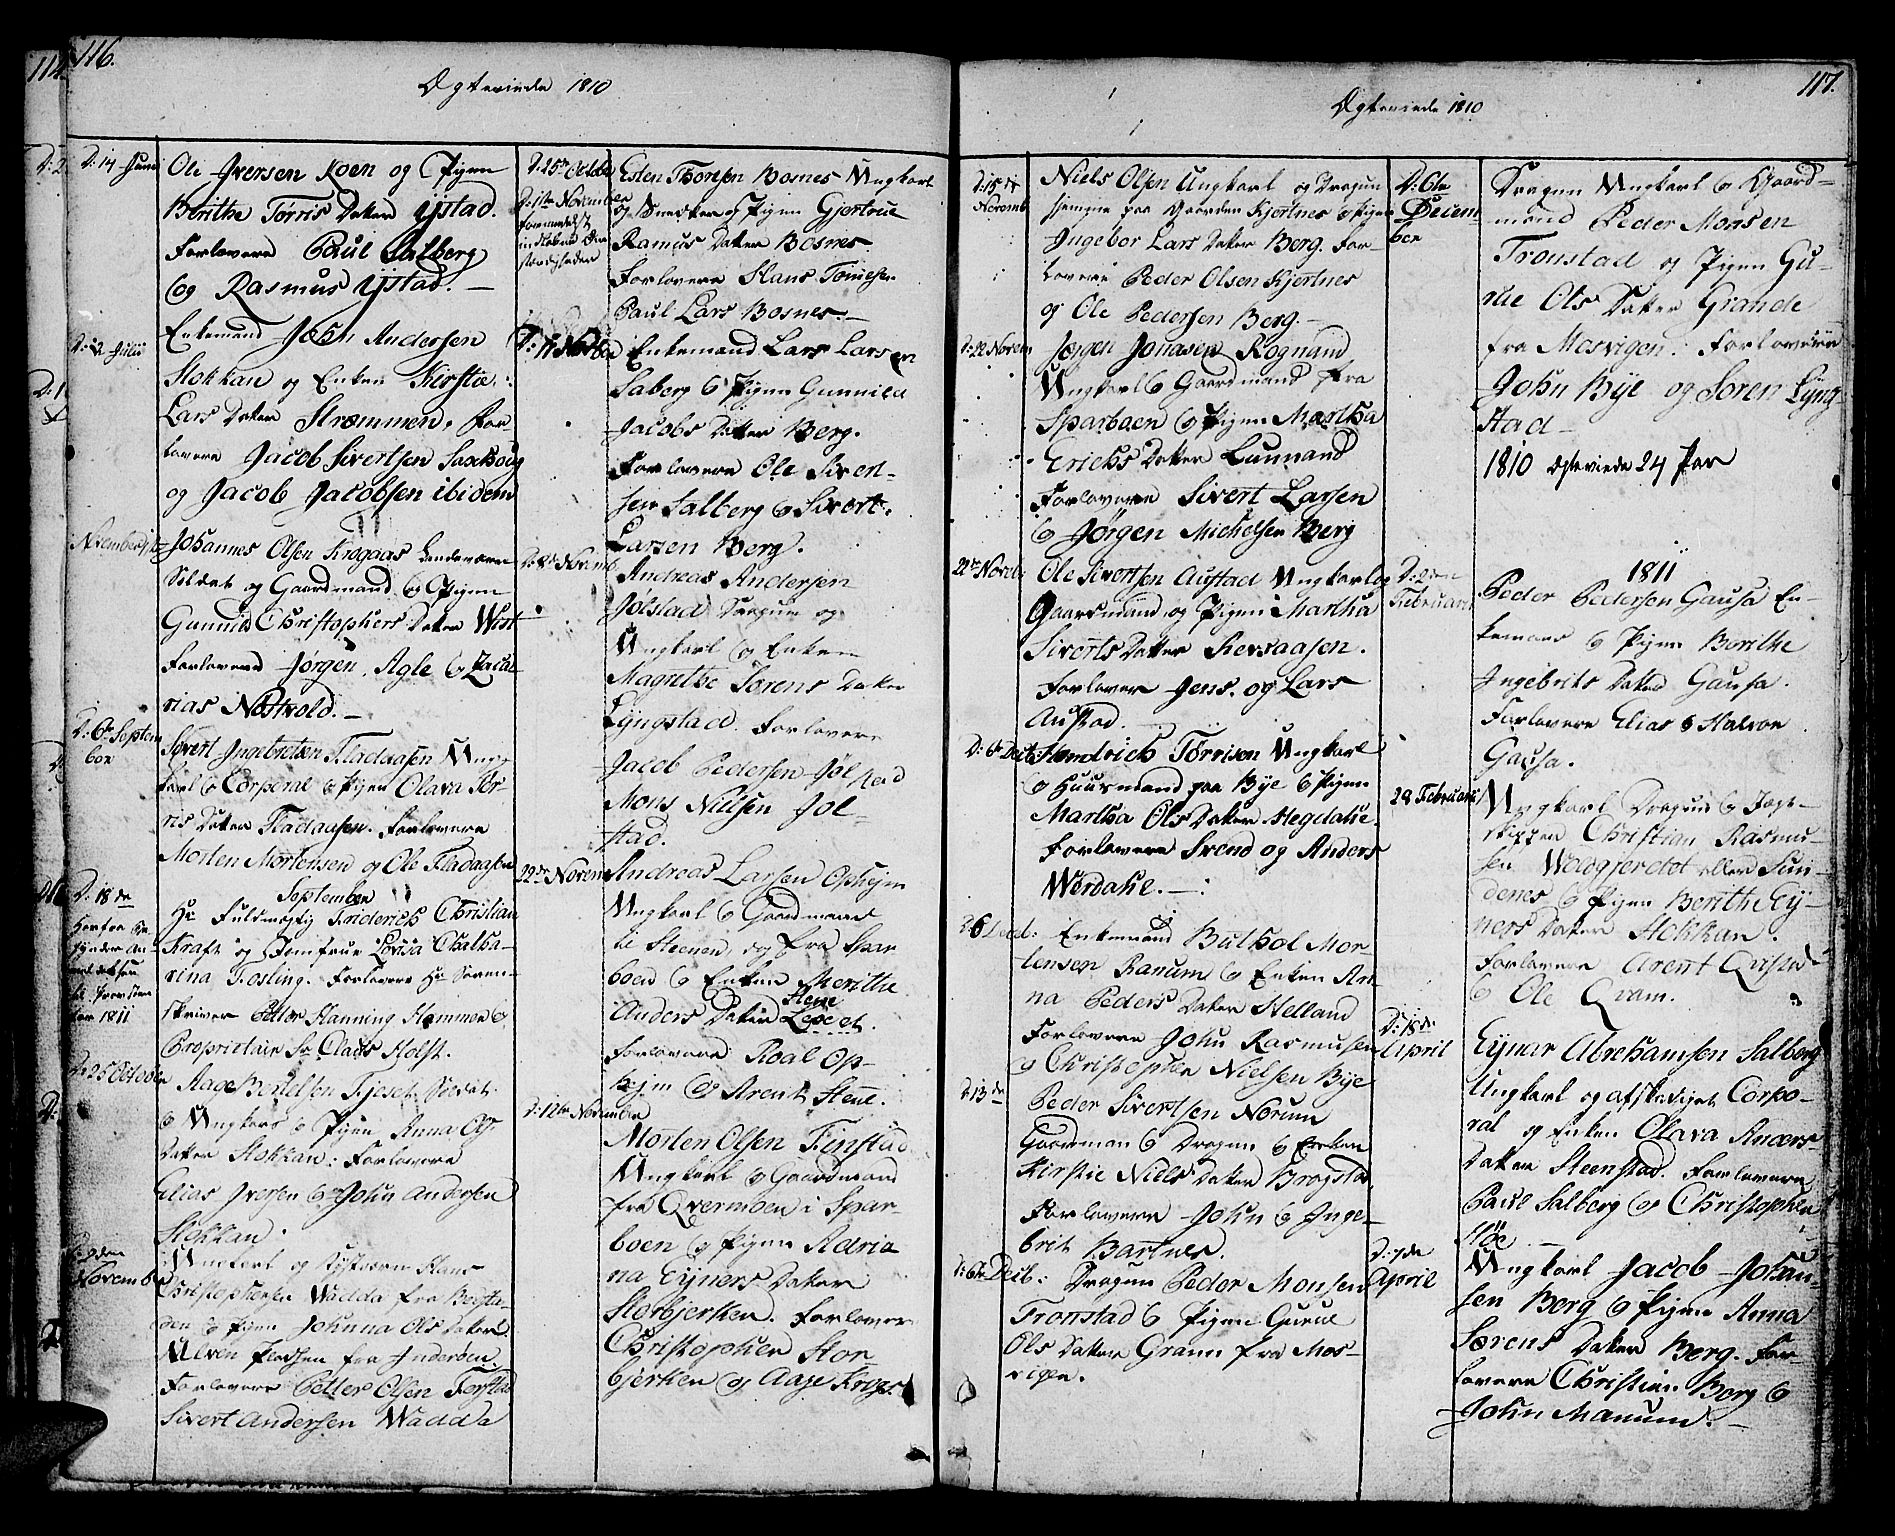 116.
Ægteviede 1810
D: 14 Juni
Ole Iversen Koen og Pigen
Berithe Tørris Dater Ystad.
Forlovere Paul Salberg
og Rasmus Ystad. —
D: 12 Julii
Enkemand John Andersen
Stokkan og Enken Kirstie
Lars Dater Strømmen, For
lovere Jacob Sivertsen Saxhoug
og Jacob Jacobsen ibidem
Johannes Olsen Krogaas Landeværn
Soldat og Gaardmand og Pigen
Gunnild Christophers Dater Wist
Forlovere Jørgen Agle og Zacha
rias Nøstvold. —
D: 6te Septem
ber
Sivert Ingebretsen Fladaasen Ung
karl og Corporal og Pigen Olava Tør
ris Dater Fladaasen. Forlovere
Morten Mortensen og Ole Fladaasen
D: 18de
September
Hr Fuldmægtig Friderich Christian
Kraft og Jomfrue Lovisa Chatha-
rina Fosling. Forlovere Hr Soren-
skriver Petter Hanning Hammer og
Proprietair Sr Claus Holst.
for 1811
D: 25 October
Aage Bertelsen Fjeset Soldat
og Ungkarl og Pigen Anna Ols
Dater Stokkan: Forlovere
Elias Iversen og John Andersen
Stokkan.
9den
November
Ungkarl og Kystværn Hans
Christophersen Wadda fra Beitsta-
den og Pigen Johnna Ols Dater
Ulven Pladsen fra Inderøen.
Forlovere Petter Olsen Førstad
Sivert Andersen Wadda
D: 25de Octobr
D: 1ste November
formedelst
indløbne Om
stændigheder
Esten Thoresen Bosnes Ungkarl
og Snedker og Pigen Gjertrue
Ramus Dater Bosnes
Forlovere Hans Tomesen
Paul Lars Bosnes. —
Enkemand Lars Larsen
Saberg og Pigen Gunnild
Jacobs Dater Berg.
Forlovere Ole Siver-
sen Salberg og Sivert
Larsen Berg.
Novemb
Andreas Andersen
Jølstad Dragun og
Ungkarl og Enken
Magrethe Sørens Dater
Lyngstad. Forlovere
Jacob Pedersen Jølstad
Mons Nielsen Jøl-
stad.
22de Novem
Andreas Larsen Ophejm
Ungkarl og Gaardmand
til Steenen, og fra Spar
boen og Enken Merithe
Anders Dater Stene
Forlovere Roal Op-
hejm og Arent Stene.
D: 12te November
Morten Olsen Finstad
Ungkarl og Gaardmand
fra Qvermboen i Spar-
boen og Pigen Adria
na Eyners Dater
Storbjerken. Forlovere
Christopher Stor-
bjerken og Aage Krogs
117.
Ægteviede 1810
D: 15de
Novemb
Niels Olsen Ungkarl og Dragun
hjemme paa Gaarden Kjertnes og Pigen
Ingebor Lars Dater Berg. For-
lovere Peder Olsen Kjertnes
og Ole Pedersen Berg. —
D: 22 Novem
Jørgen Jonasen Rognand
Ungkarl og Gaardmand fra
Sparboen og Pigen Martha
Erichs Dater Lunnand
Forlovere Sivert Larsen
og Jørgen Michelsen Berg
22de Novemb
Ole Sivertsen Austad Ungkarl og
Gaardmand og Pigen Martha
Siverts Dater Revsaasen.
Forlover Jens og Lars
Austad.
D: 6te Decb
Hendrich Tørrisen Ungkarl
og Huusmand paa Bye og Pigen
Martha Ols Dater Hegdalie.
Forlovere Svend og Anders
Werdalie. —
26 Decb:
Enkemand Buthol Mor-
tensen Ranum og Enken An
na Peders Dater Helland
Forlovere John Rasmusen
og Christopher Nielsen Bye
D 13de
Peder Sivertsen Norum
Gaardman og Dragun og Enken
Kirstie Niels Dater Bragstad
Forlovere John og Inge-
brit Bartnes.
D: 6te Decb:
Dragun Peder Monsen
Tronstad og Pigen Gurue
Ols Dater Grann fra Mos-
vigen.
D: 6te
Decem
ber
Dragun Ungkarl og Gaard-
mand Peder Monsen
Tronstad og Pigen Gu-
rue Ols Dater Grande
fra Mosvigen: Forlovere
John Bye og Soren Lyng
stad —
1810 Ægteviede 24 Par
1811
D: 2den
Februari
Peder Pedersen Gausa En-
kemand og Pigen Berithe
Ingebrits Dater Gausa.
Forlovere Elias og Halvor
Gausa.
28 Februarii
Ungkarl Dragun og
Christian Rasmu-
sen Wadgjerdet eller Sun-
denes og Pigen Berith Ey-
ners Dater Stokkan.
Forlovere Arent Qvistad
og Ole Qvam.
D: 18de
April
Eynar Abrehamsen Salberg
Ungkarl og afskediget Corpo-
ral og Enken Olava Anders
Dater Steenstad. Forlovere
Paul Salberg og Christopher
Høe. —
D: 7de
April
Ungkarl Jacob Johan
sen Berg og Pigen Anna
Sørens Dater Berg. For-
lovere Christian Berg og
John Manum. —